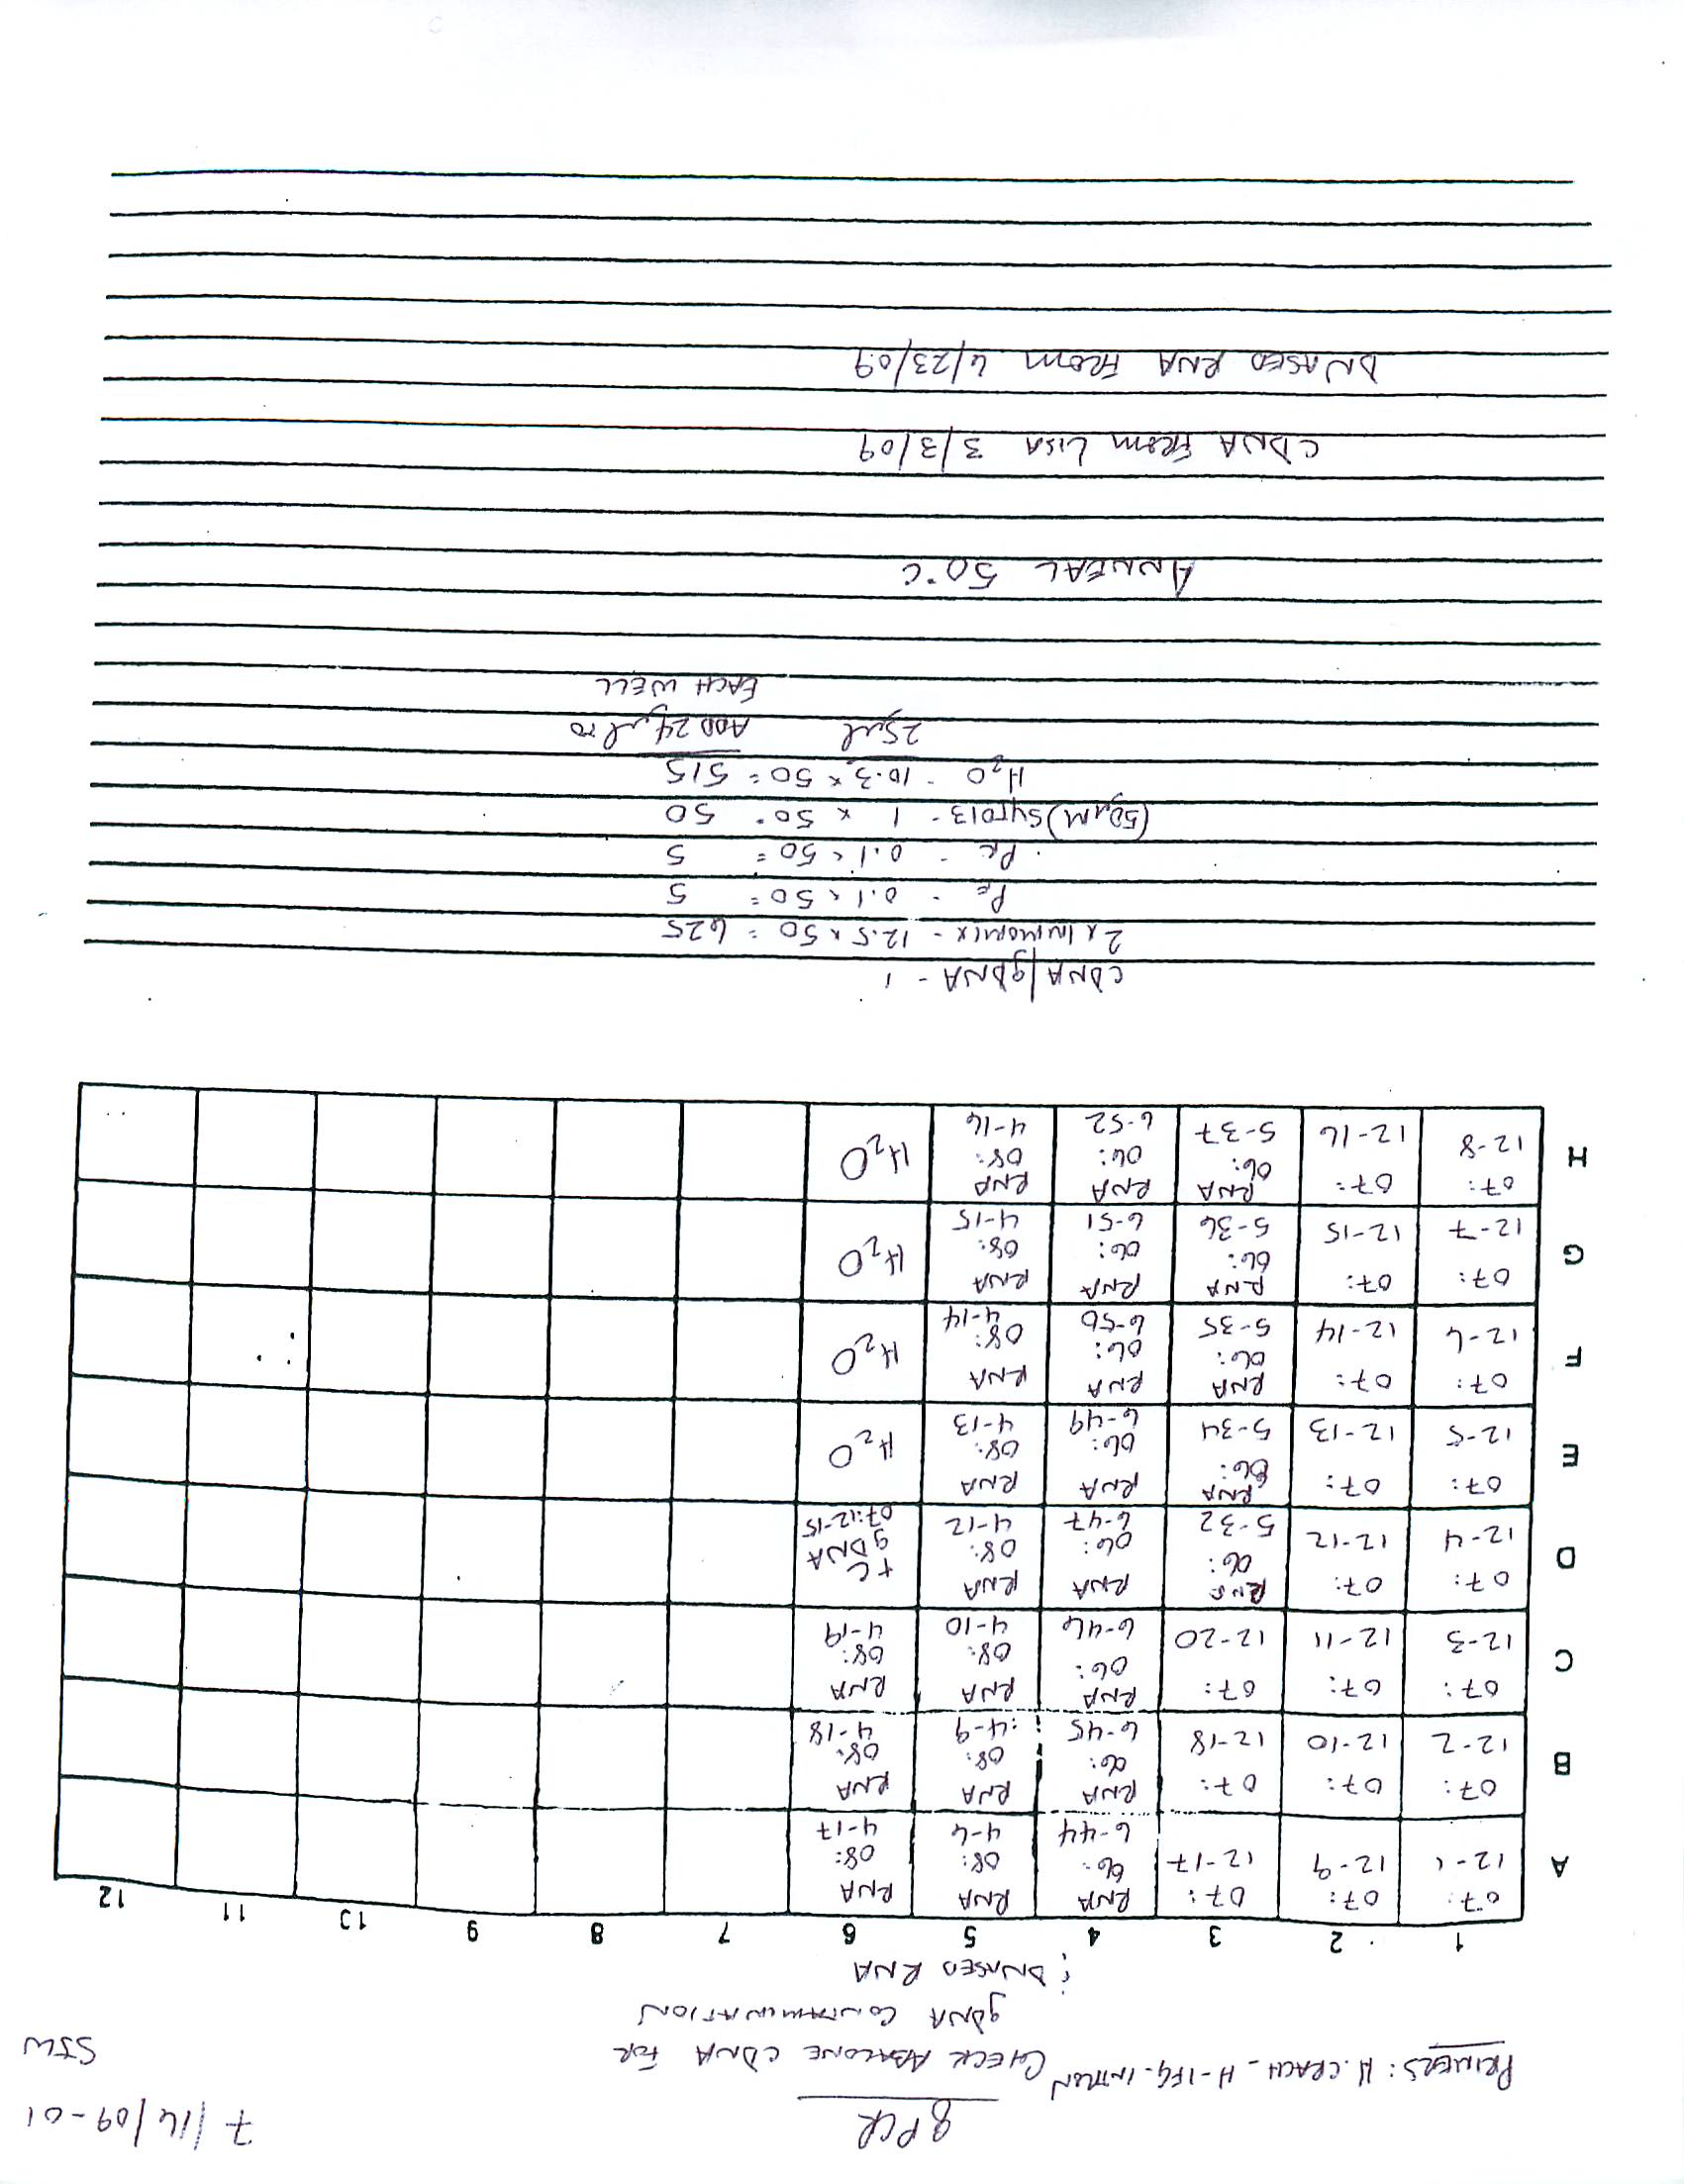 qPCR
7/16/09-01
SJW
PRIMERS: H. CRACH-H-1FG-INTRON
CHECK ABALONE CDNA FOR
gDNA CONTAMINATION
: DNASED RNA
1 2 3 4 5 6 7 8 9 10 11 12
A 07: 12-1 07: 12-9 07: 12-17 RNA 06: 6-44 RNA 08: 4-6 RNA 08: 4-17
B 07: 12-2 07: 12-10 07: 12-18 RNA 06: 6-45 RNA 08: 4-9 RNA 08: 4-18
C 07: 12-3 07: 12-11 07: 12-20 RNA 06: 6-46 RNA 08: 4-10 RNA 08: 4-19
D 07: 12-4 07: 12-12 RNA 06: 5-32 RNA 06: 6-47 RNA 08: 4-12 +C gDNA 07:12-15
E 07: 12-5 07: 12-13 RNA 06: 5-34 RNA 06: 6-49 RNA 08: 4-13 H2O
F 07: 12-6 07: 12-14 RNA 06: 5-35 RNA 06: 6-50 RNA 08: 4-14 H2O
G 07: 12-7 07: 12-15 RNA 06: 5-36 RNA 06: 6-51 RNA 08: 4-15 H2O
H 07: 12-8 07: 12-16 RNA 06: 5-37 RNA 06: 6-52 RNA 08: 4-16 H2O
CDNA/gDNA - 1
2x IMMOMIX - 12.5 x 50 = 625
PF - 0.1 x 50 = 5
PR - 0.1 x 50 = 5
(50µM) SYTO13 - 1 x 50 = 50
H2O - 10.3 x 50 = 515
25µl ADD 24µl TO
EACH WELL
ANNEAL 50°C
CDNA FROM LISA 3/3/09
DNASED RNA FROM 6/23/09